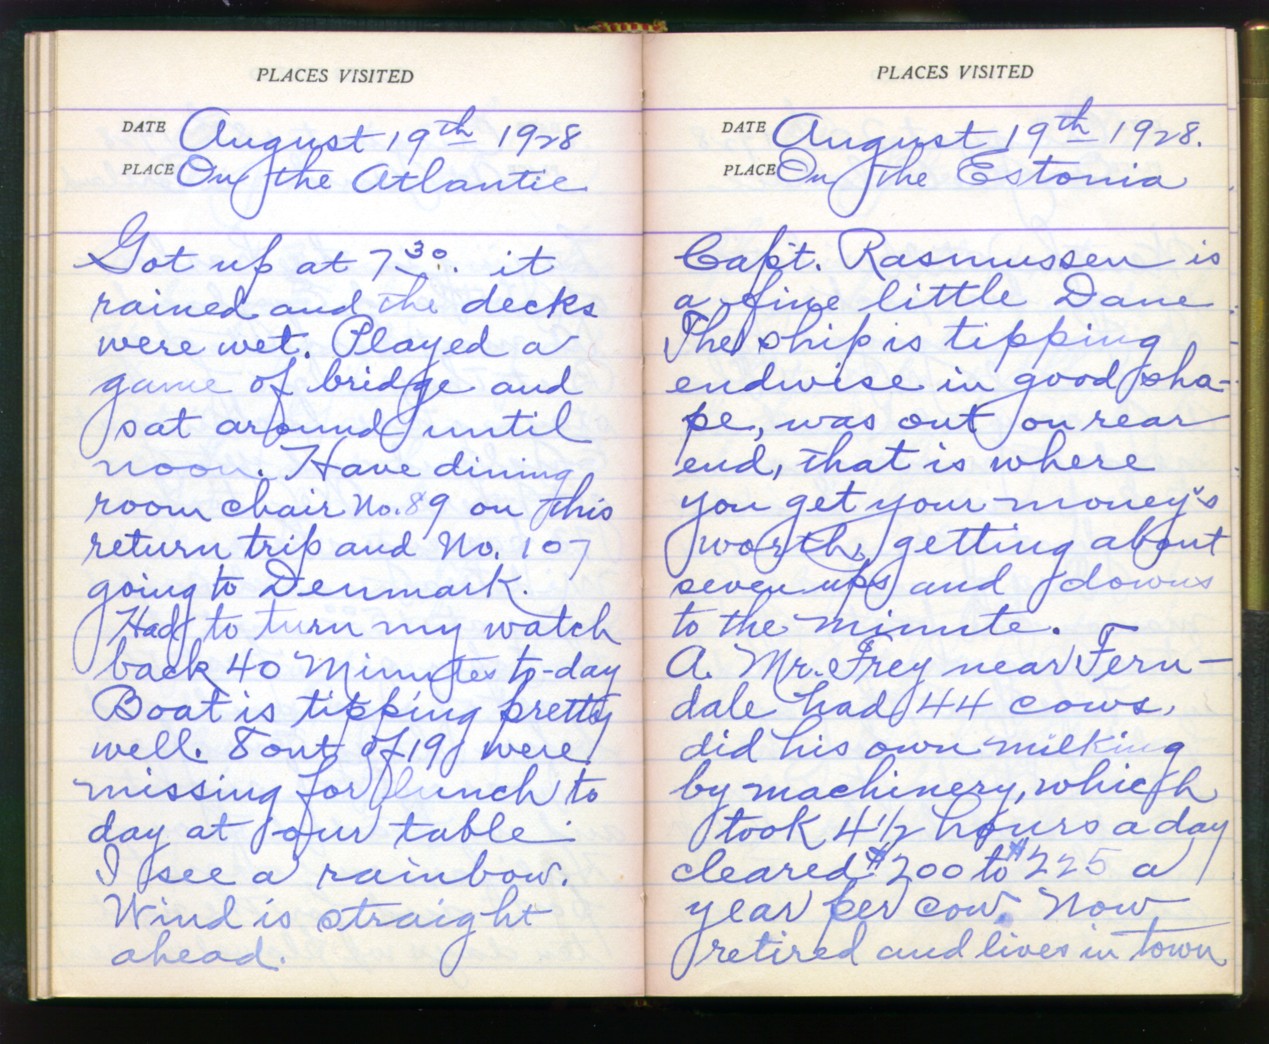 PLACES VISITED
DATE August 19th 1928
PLACE On the Atlantic
Got up at 7 30. it
rained and the decks
were wet. Played a
game of bridge and
sat around until
noon. Have dining
room chair No. 89 on this
return trip and No. 107
going to Denmark.
Had to turn my watch
back 40 Minutes to-day
Boat is tipping pretty
well. 8 out of 19 were
missing for lunch to
day at our table.
I see a rainbow.
Wind is straight
ahead.
PLACES VISITED
DATE August 19th 1928.
PLACE On the Estonia
Capt. Rasmussen is
a fine little Dane
The ship is tipping
endwise in good sha-
pe, was out on rear
end, that is where
you get your money's
worth, getting about
seven ups and downs
to the minute.
A. Mr. Frey near Fern-
dale had 44 cows,
did his own milking
by machinery, which
took 4 1/2 hours a day
cleared $200 to $225 a
year per cow. Now
retired and lives in town